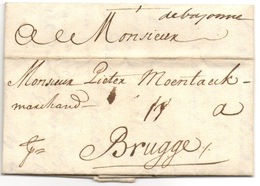 debayonne
A Monsieur
Monsieur Pieter Moentack
marchand a
Brugge